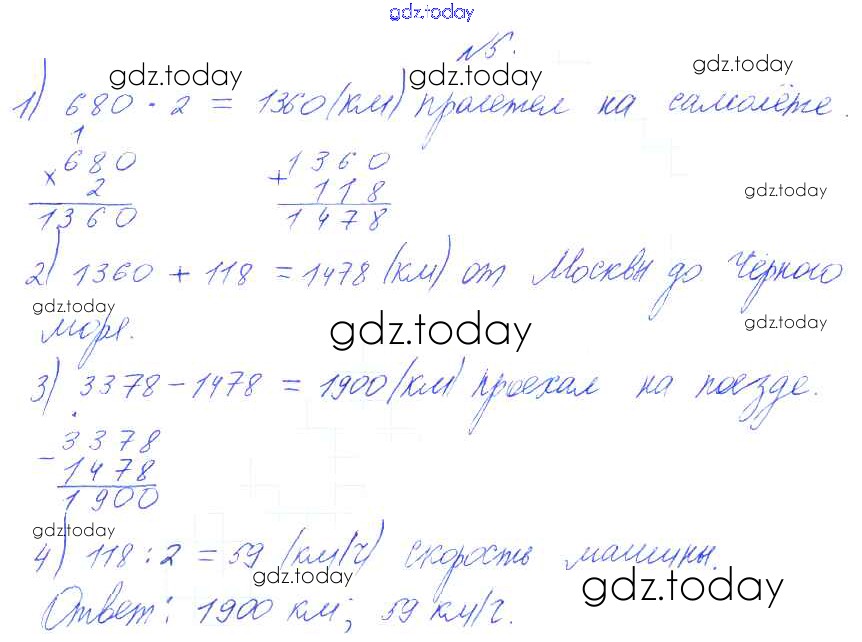 gdz.today
№5.
gdz.today gdz.today gdz.today
1) 680 · 2 = 1360 (км) пролетел на самолёте.
1
× 680 + 1360
2 118 gdz.today
1360 1478
2) 1360 + 118 = 1478 (км) от Москвы до Чёрного
gdz.today gdz.today gdz.today
моря.
3) 3378 - 1478 = 1900 (км) проехал на поезде.
- 3378
1478
1900
gdz.today
4) 118 : 2 = 59 (км/ч) скорость машины.
gdz.today gdz.today
Ответ: 1900 км; 59 км/ч.